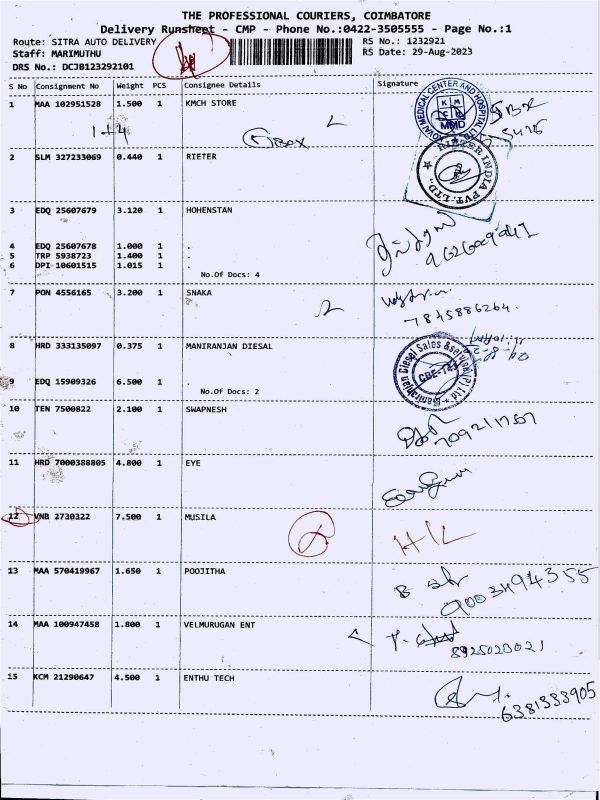 THE PROFESSIONAL COURIERS, COIMBATORE
Delivery Runsheet - CMP - Phone No.:0422-3505555 - Page No.:1
Route: SITRA AUTO DELIVERY RS No.: 1232921
Staff: MARIMUTHU RS Date: 29-Aug-2023
DRS No.: DCJB123292101
S No Consignment No Weight PCS Consignee Details Signature
1 MAA 102951528 1.500 1 KMCH STORE
1+4
BOX
KOVAI MEDICAL CENTER AND HOSPITAL
KMCH
MMD
2 SLM 327233069 0.440 1 RIETER
RIETER INDIA PVT. LTD.
3 EDQ 25607679 3.120 1 HOHENSTAN
4 EDQ 25607678 1.000 1 .
5 TRP 5938723 1.400 1 .
6 DPI 10601515 1.015 1 .
No.Of Docs: 4
7 PON 4556165 3.200 1 SNAKA
7845886264
8 HRD 333135097 0.375 1 MANIRANJAN DIESAL
Maniranjan Diesel Sales & Service (P) Ltd
9 EDQ 15909326 6.500 1 .
No.Of Docs: 2
10 TEN 7500822 2.100 1 SWAPNESH
11 HRD 7000388805 4.800 1 EYE
12 VNB 2730322 7.500 1 MUSILA
H/L
13 MAA 570419967 1.650 1 POOJITHA
9003494355
14 MAA 100947458 1.800 1 VELMURUGAN ENT
8925023021
15 KCM 21290647 4.500 1 ENTHU TECH
6381333905